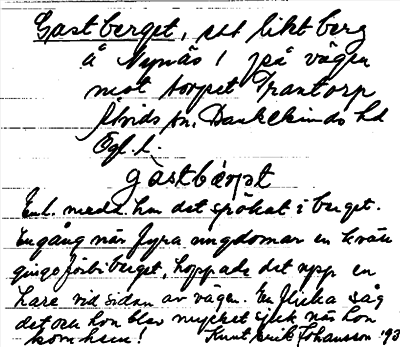 Gastberget, ett litet berg
å Nynäs i på vägen
mot torpet Grantorp
Åtvids sn. Bankekinds hd
Ögl. l.
gàstbärjet
Enl. medd. har det spökat i berget.
En gång när fyra ungdomar en kväll
gingo förbi berget, hoppade det upp en
hare vid sidan av vägen. En flicka såg
det och hon blev mycket sjuk när hon
kom hem! Knut Erik Johansson '93